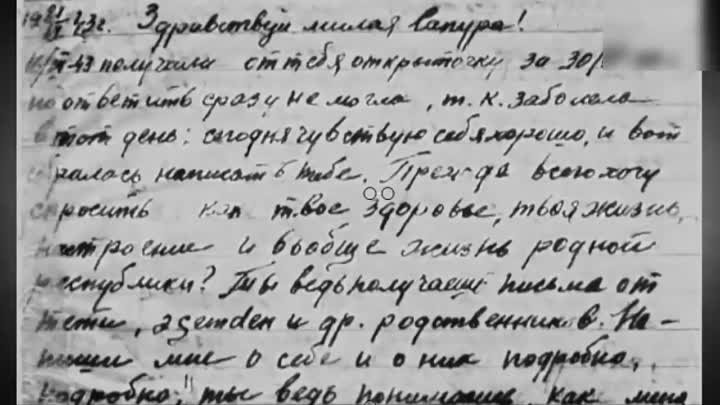 Здравствуй милая Сапура!
получила от тебя открыточку за 30/
но ответить сразу не могла, т.к. заболела
в тот день; сегодня чувствую себя хорошо, и вот
собралась написать тебе. Прежде всего хочу
спросить как твое здоровье, твоя жизнь,
настроение и вообще жизнь родной
республики? Ты ведь получаешь письма от
тети, и др. родственников. На-
пиши мне о себе и о них подробно,
подробно, ты ведь понимаешь, как меня